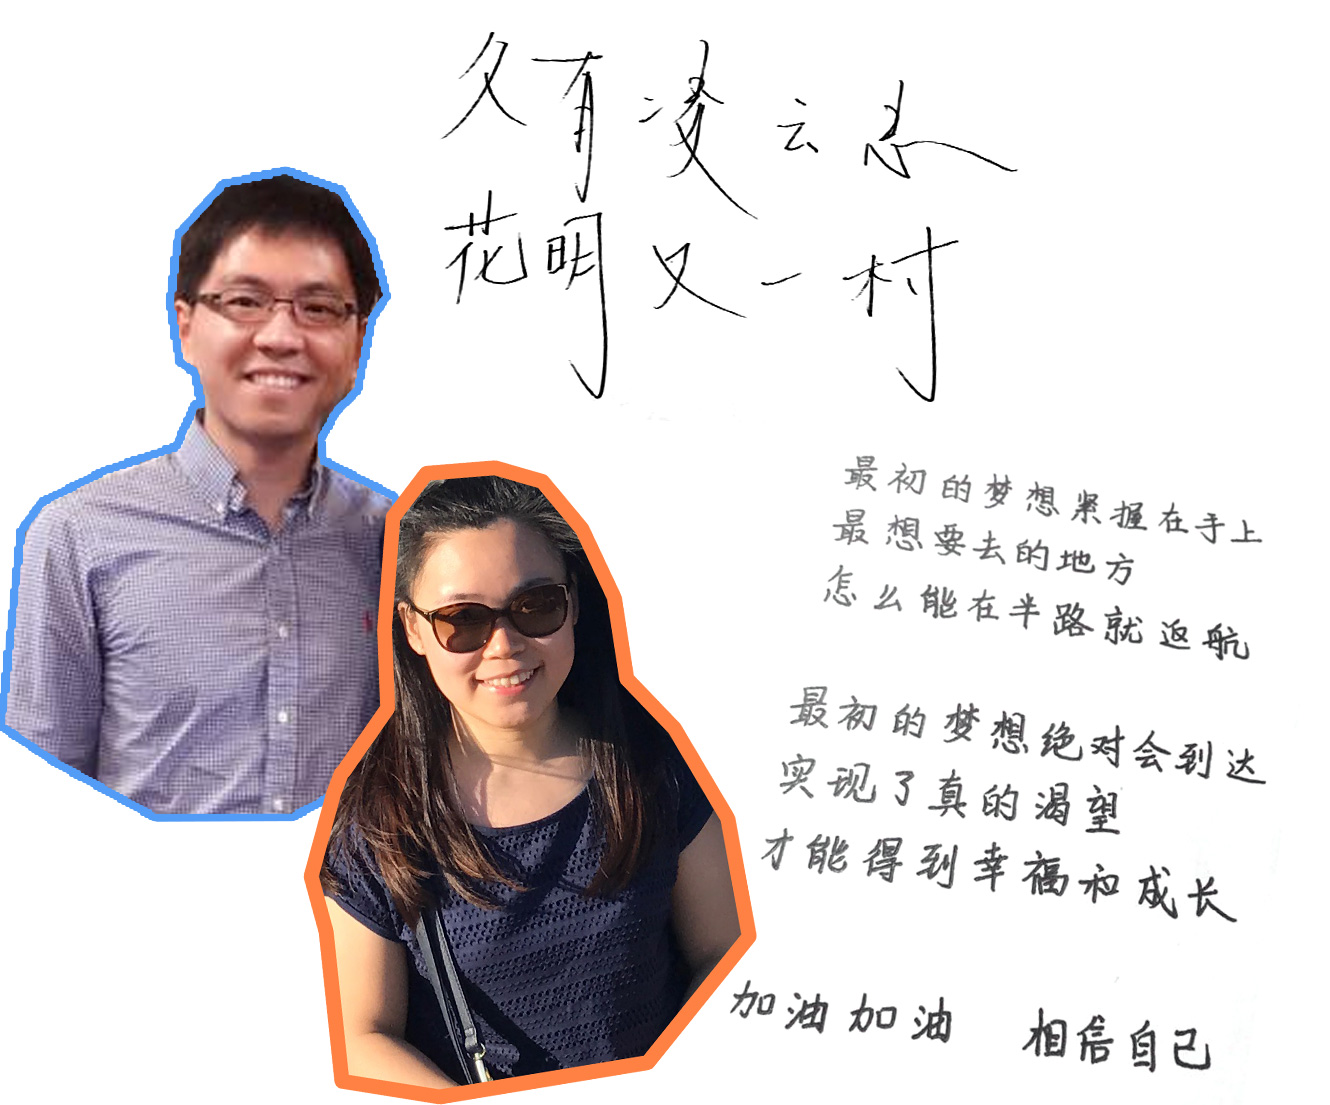 久有凌云志
花明又一村
最初的梦想紧握在手上
最想要去的地方
怎么能在半路就返航
最初的梦想绝对会到达
实现了真的渴望
才能得到幸福和成长
加油加油 相信自己